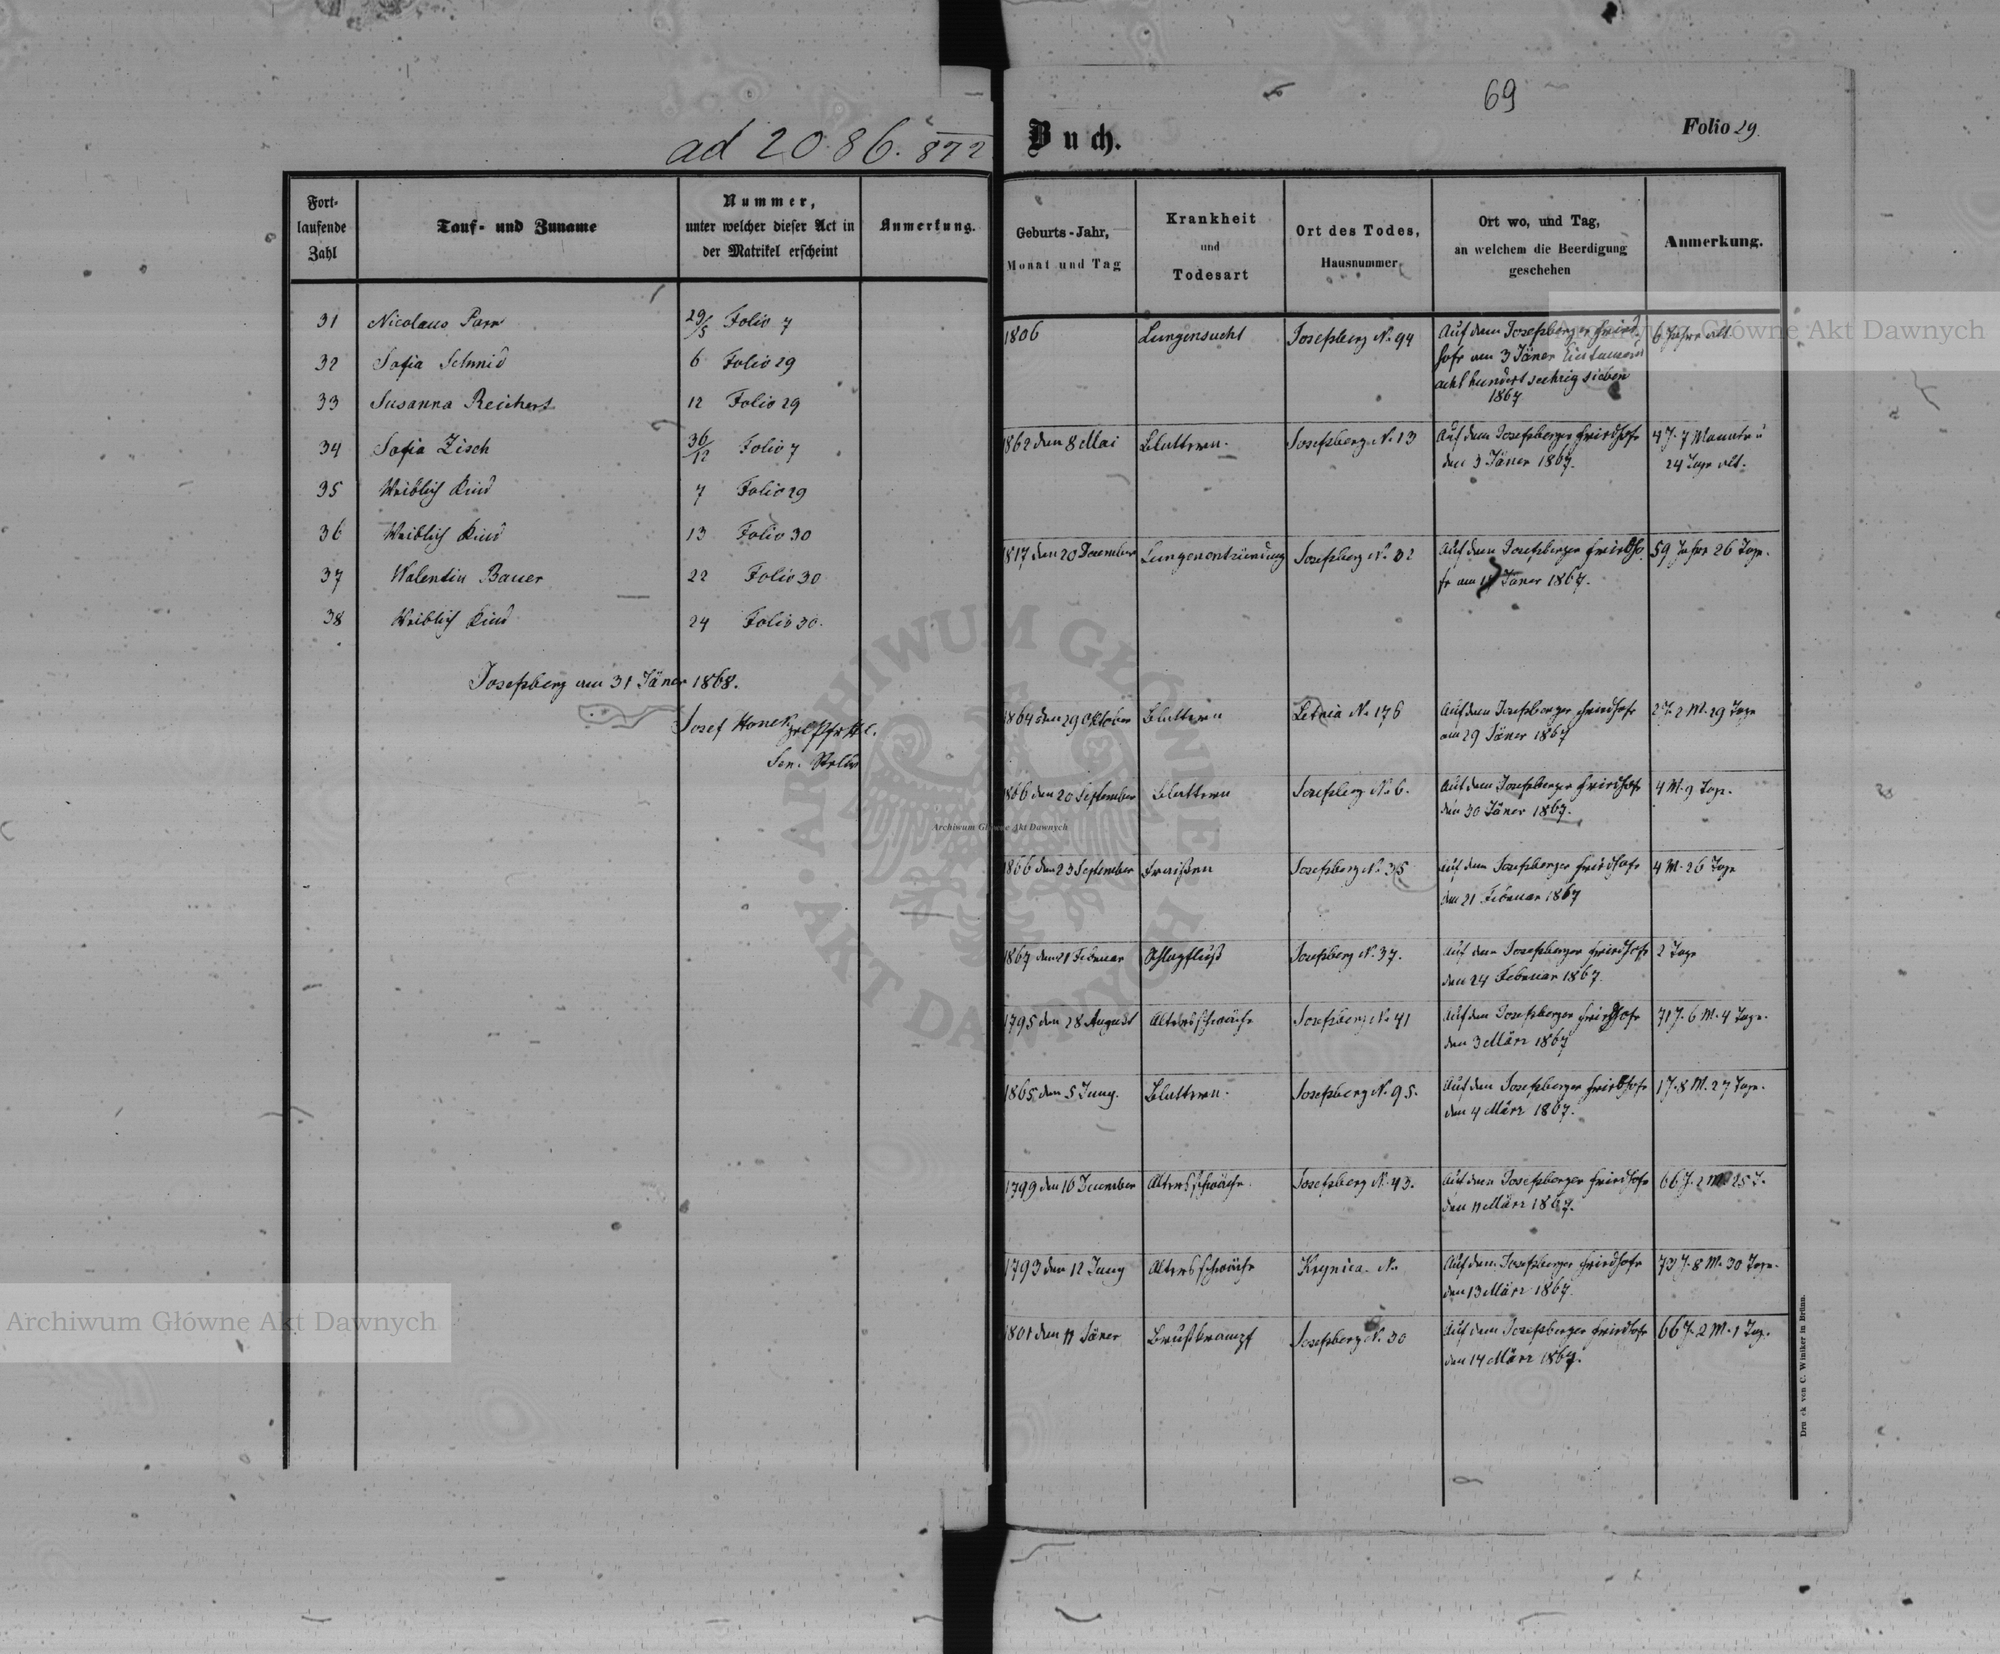 ad 2086. 872
Fort-
laufende
Zahl
Tauf- und Zuname
Nummer,
unter welcher dieser Act in
der Matrikel erscheint
Anmerkung.
31 Nicolaus Parr 29/5 Folio 7
32 Sofia Schmid 6 Folio 29
33 Susanna Reichert 12 Folio 29
34 Sofia Zisch 36/12 Folio 7
35 Weiblich Kind 7 Folio 29
36 Weiblich Kind 13 Folio 30
37 Valentin Bauer 22 Folio 30
38 Weiblich Kind 24 Folio 30.
Josefsberg am 31 Jäner 1868.
Josef Honek
Sen.
69
Buch.
Folio 29.
Geburts-Jahr,
Monat und Tag
Krankheit
und
Todesart
Ort des Todes,
Hausnummer
Ort wo, und Tag,
an welchem die Beerdigung
geschehen
Anmerkung.
1806 Lungensucht Josefsberg N. 94 Auf dem Josefsberger Fried- 6 Jahre alt
hofe am 3 Jäner Eintausend
acht hundert sechzig sieben
1867
1862 den 8 Mai Blattern. Josefsberg N. 13 Auf dem Josefsberger Friedhofe 4 J. 7 Monate u
den 3 Jäner 1867. 24 Tage alt.
1817 den 20 December Lungenentzündung Josefsberg N. 32 Auf dem Josefsberger Friedho- 59 Jahre 26 Tage.
fe am Jäner 1867.
1864 den 29 Oktober Blattern Letnia N. 176 Auf dem Josefsberger Friedhofe 2 J. 2 M. 29 Tage
am 29 Jäner 1867
1866 den 20 September Blattern Josefsberg N. 6. Auf dem Josefsberger Friedhofe 4 M. 9 Tage.
den 30 Jäner 1867.
1866 den 23 September Fraisen Josefsberg N. 35 Auf dem Josefsberger Friedhofe 4 M. 26 Tage
den 21 Februar 1867
1867 den 21 Februar Schlagfluß Josefsberg N. 37. Auf dem Josefsberger Friedhofe 2 Tage
den 24 Februar 1867.
1795 den 28 August Altersschwäche Josefsberg N. 41 Auf dem Josefsberger Friedhofe 71 J. 6 M. 4 Tage.
den 3 März 1867
1865 den 5 Juny. Blattern. Josefsberg N. 95. Auf dem Josefsberger Friedhofe 1 J. 8 M. 27 Tage.
den 4 März 1867.
1799 den 16 December Altersschwäche. Josefsberg N. 43. Auf dem Josefsberger Friedhofe 66 J. 2 M. 25 T.
den 11 März 1867.
1793 den 12 Juny Altersschwäche Krynica N. Auf dem Josefsberger Friedhofe 73 J. 8 M. 30 Tage.
den 13 März 1867.
1801 den 11 Jäner Brustkrampf Josefsberg N. 30 Auf dem Josefsberger Friedhofe 66 J. 2 M. 1 Tag.
den 14 März 1867.
Druck von C. Winiker in Brünn.
ARCHIWUM GŁÓWNE AKT DAWNYCH
Archiwum Główne Akt Dawnych
Archiwum Główne Akt Dawnych
Archiwum Główne Akt Dawnych